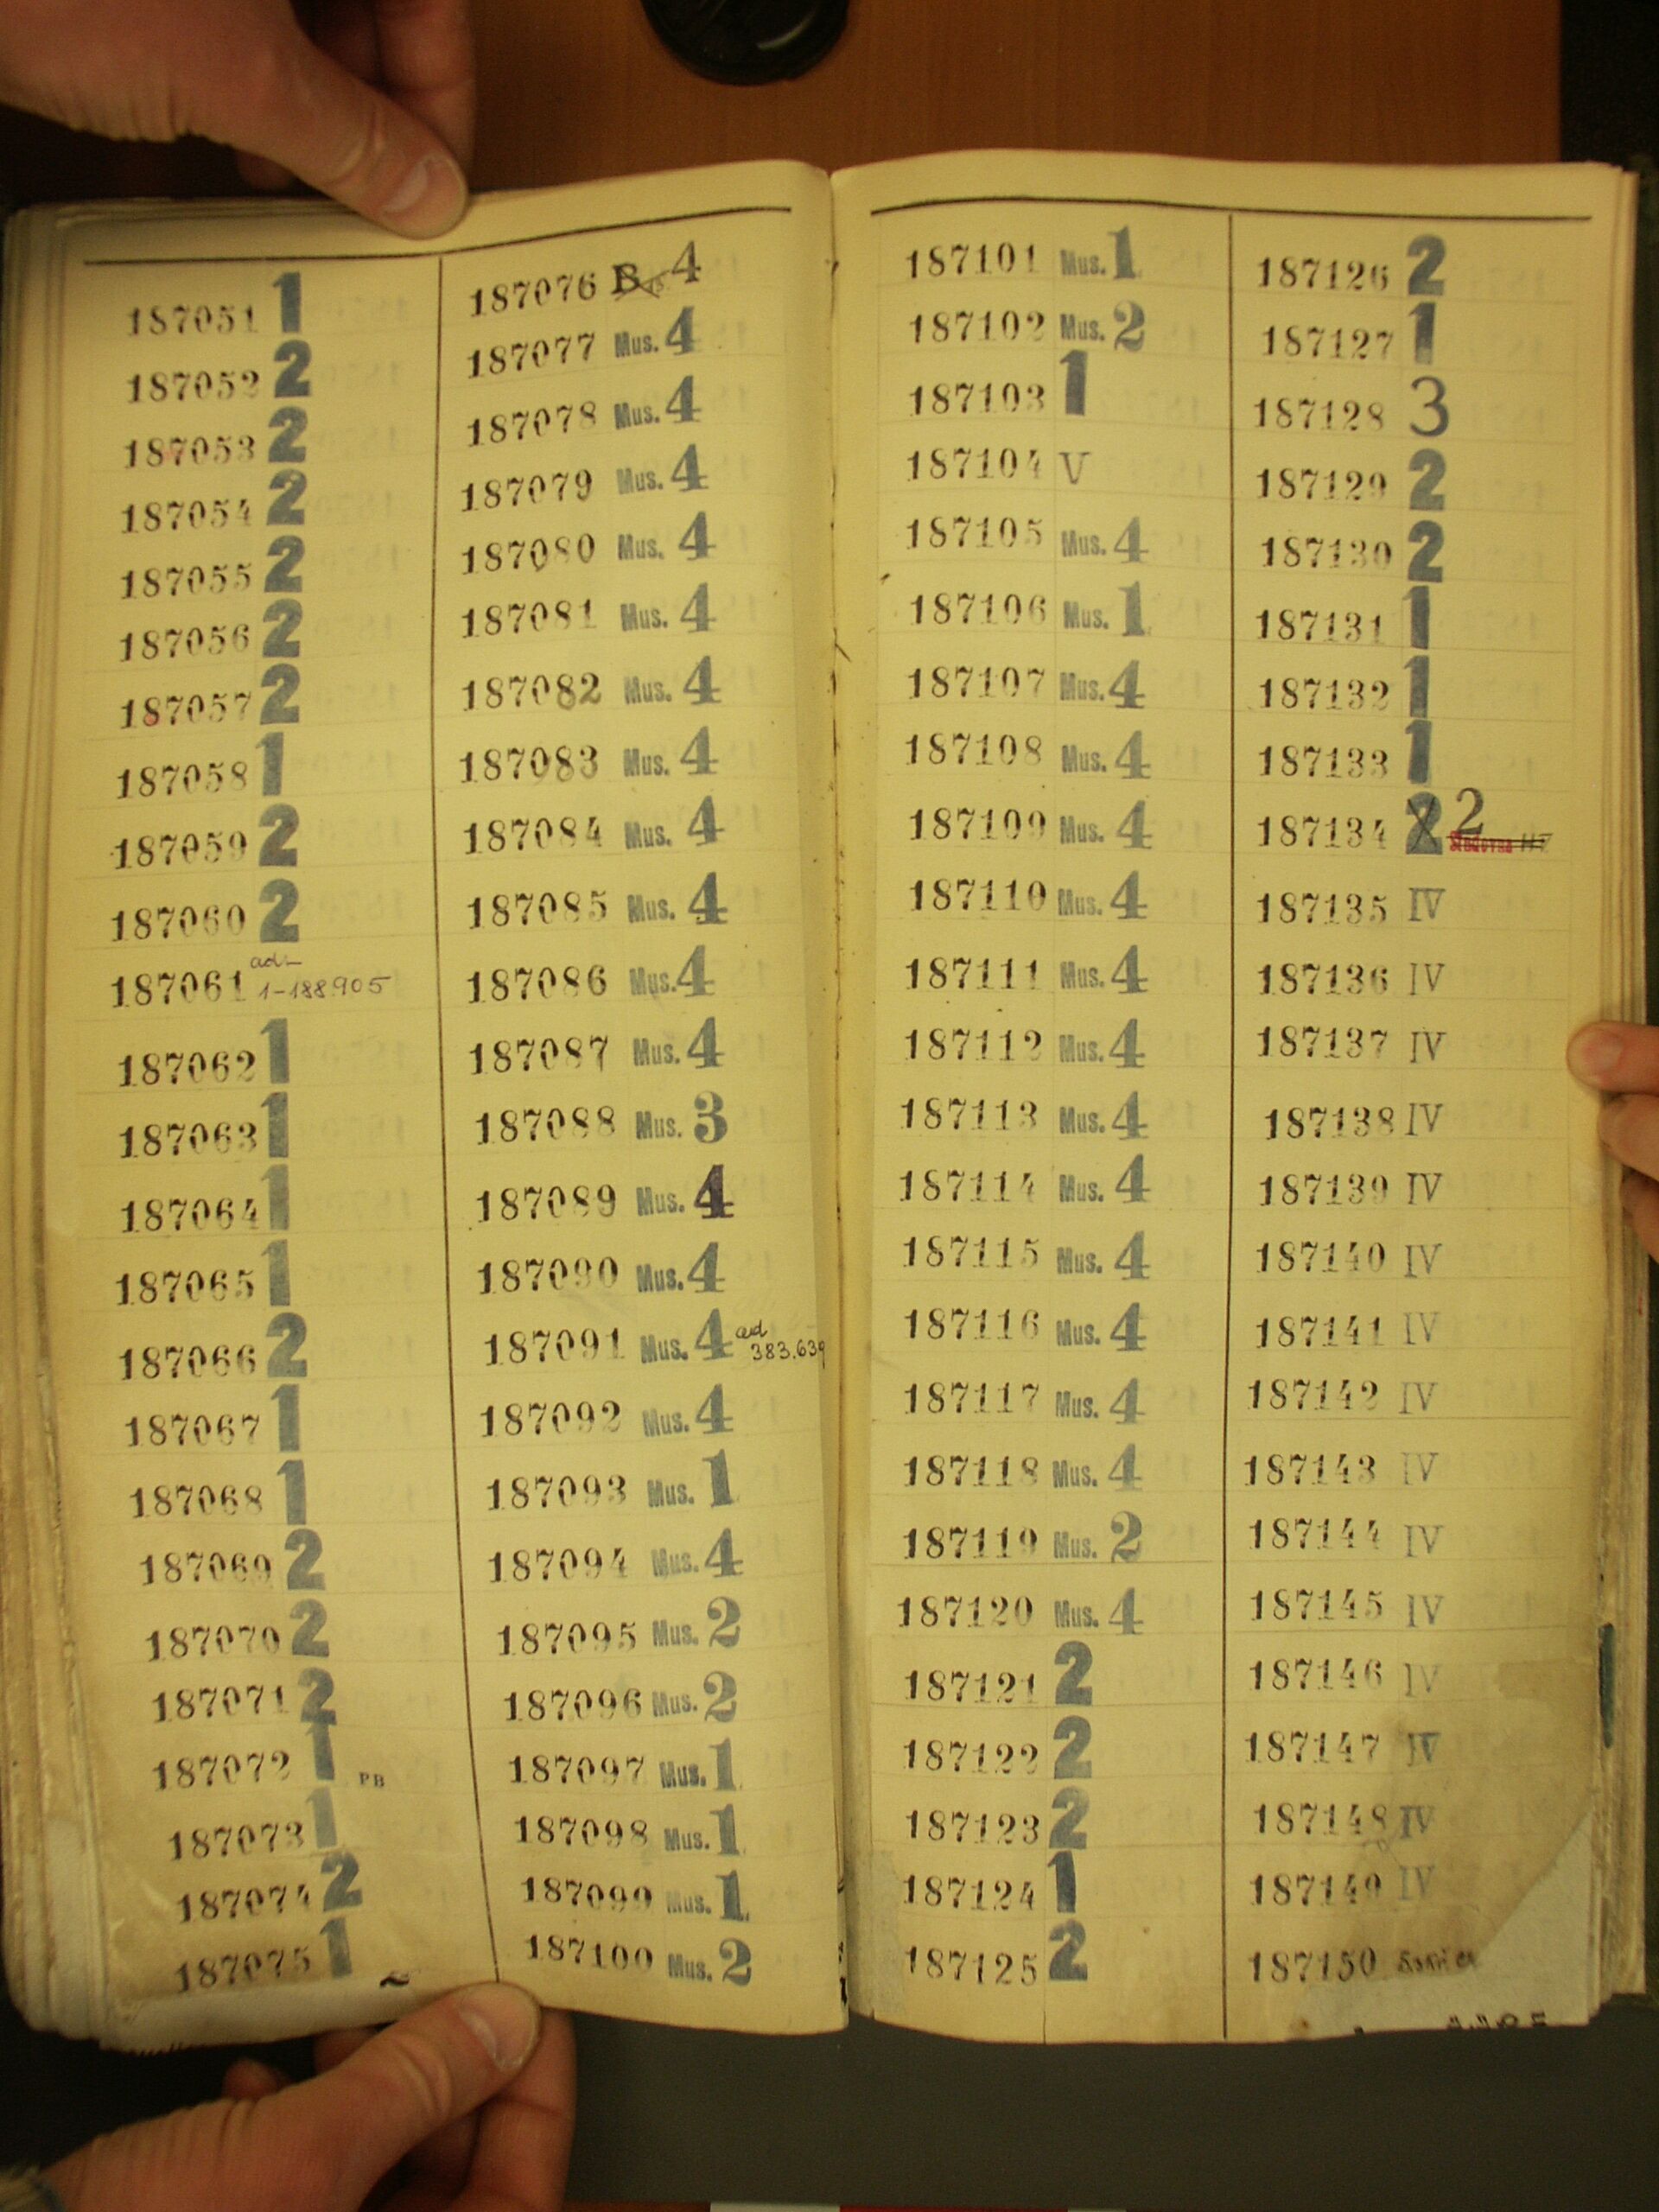 187051 1
187052 2
187053 2
187054 2
187055 2
187056 2
187057 2
187058 1
187059 2
187060 2
187061 ad 1-188.905
187062 1
187063 1
187064 1
187065 1
187066 2
187067 1
187068 1
187069 2
187070 2
187071 2
187072 1 PB
187073 1
187074 2
187075 1
187076 B 4
187077 Mus. 4
187078 Mus. 4
187079 Mus. 4
187080 Mus. 4
187081 Mus. 4
187082 Mus. 4
187083 Mus. 4
187084 Mus. 4
187085 Mus. 4
187086 Mus. 4
187087 Mus. 4
187088 Mus. 3
187089 Mus. 4
187090 Mus. 4
187091 Mus. 4 ad 383.639
187092 Mus. 4
187093 Mus. 1
187094 Mus. 4
187095 Mus. 2
187096 Mus. 2
187097 Mus. 1
187098 Mus. 1
187099 Mus. 1
187100 Mus. 2
187101 Mus. 1
187102 Mus. 2
187103 1
187104 V
187105 Mus. 4
187106 Mus. 1
187107 Mus. 4
187108 Mus. 4
187109 Mus. 4
187110 Mus. 4
187111 Mus. 4
187112 Mus. 4
187113 Mus. 4
187114 Mus. 4
187115 Mus. 4
187116 Mus. 4
187117 Mus. 4
187118 Mus. 4
187119 Mus. 2
187120 Mus. 4
187121 2
187122 2
187123 2
187124 1
187125 2
187126 2
187127 1
187128 3
187129 2
187130 2
187131 1
187132 1
187133 1
187134 2 2
187135 IV
187136 IV
187137 IV
187138 IV
187139 IV
187140 IV
187141 IV
187142 IV
187143 IV
187144 IV
187145 IV
187146 IV
187147 IV
187148 IV
187149 IV
187150